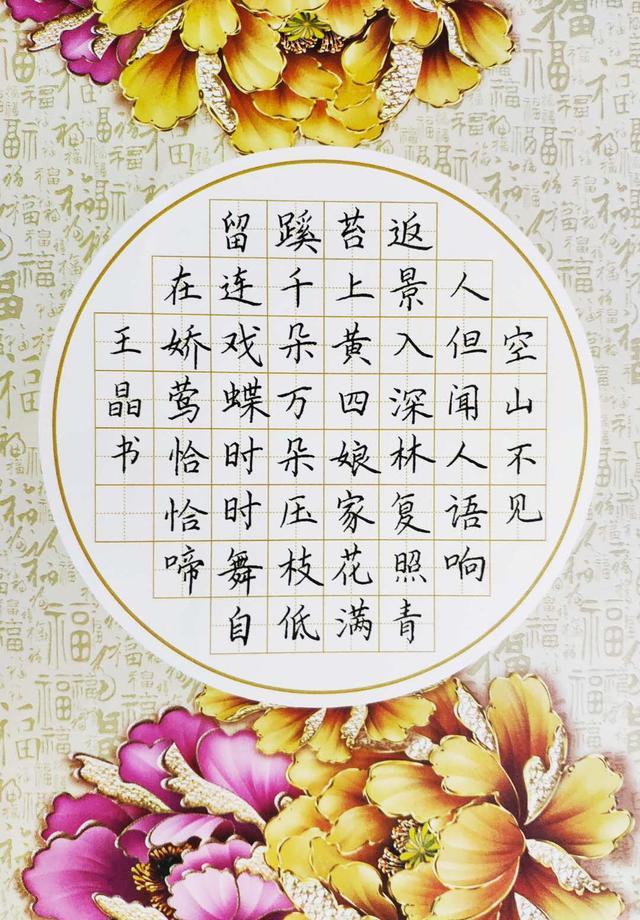 空山不见
人但闻人语响
返景入深林复照青
苔上黄四娘家花满
蹊千朵万朵压枝低
留连戏蝶时时舞自
在娇莺恰恰啼
王晶书